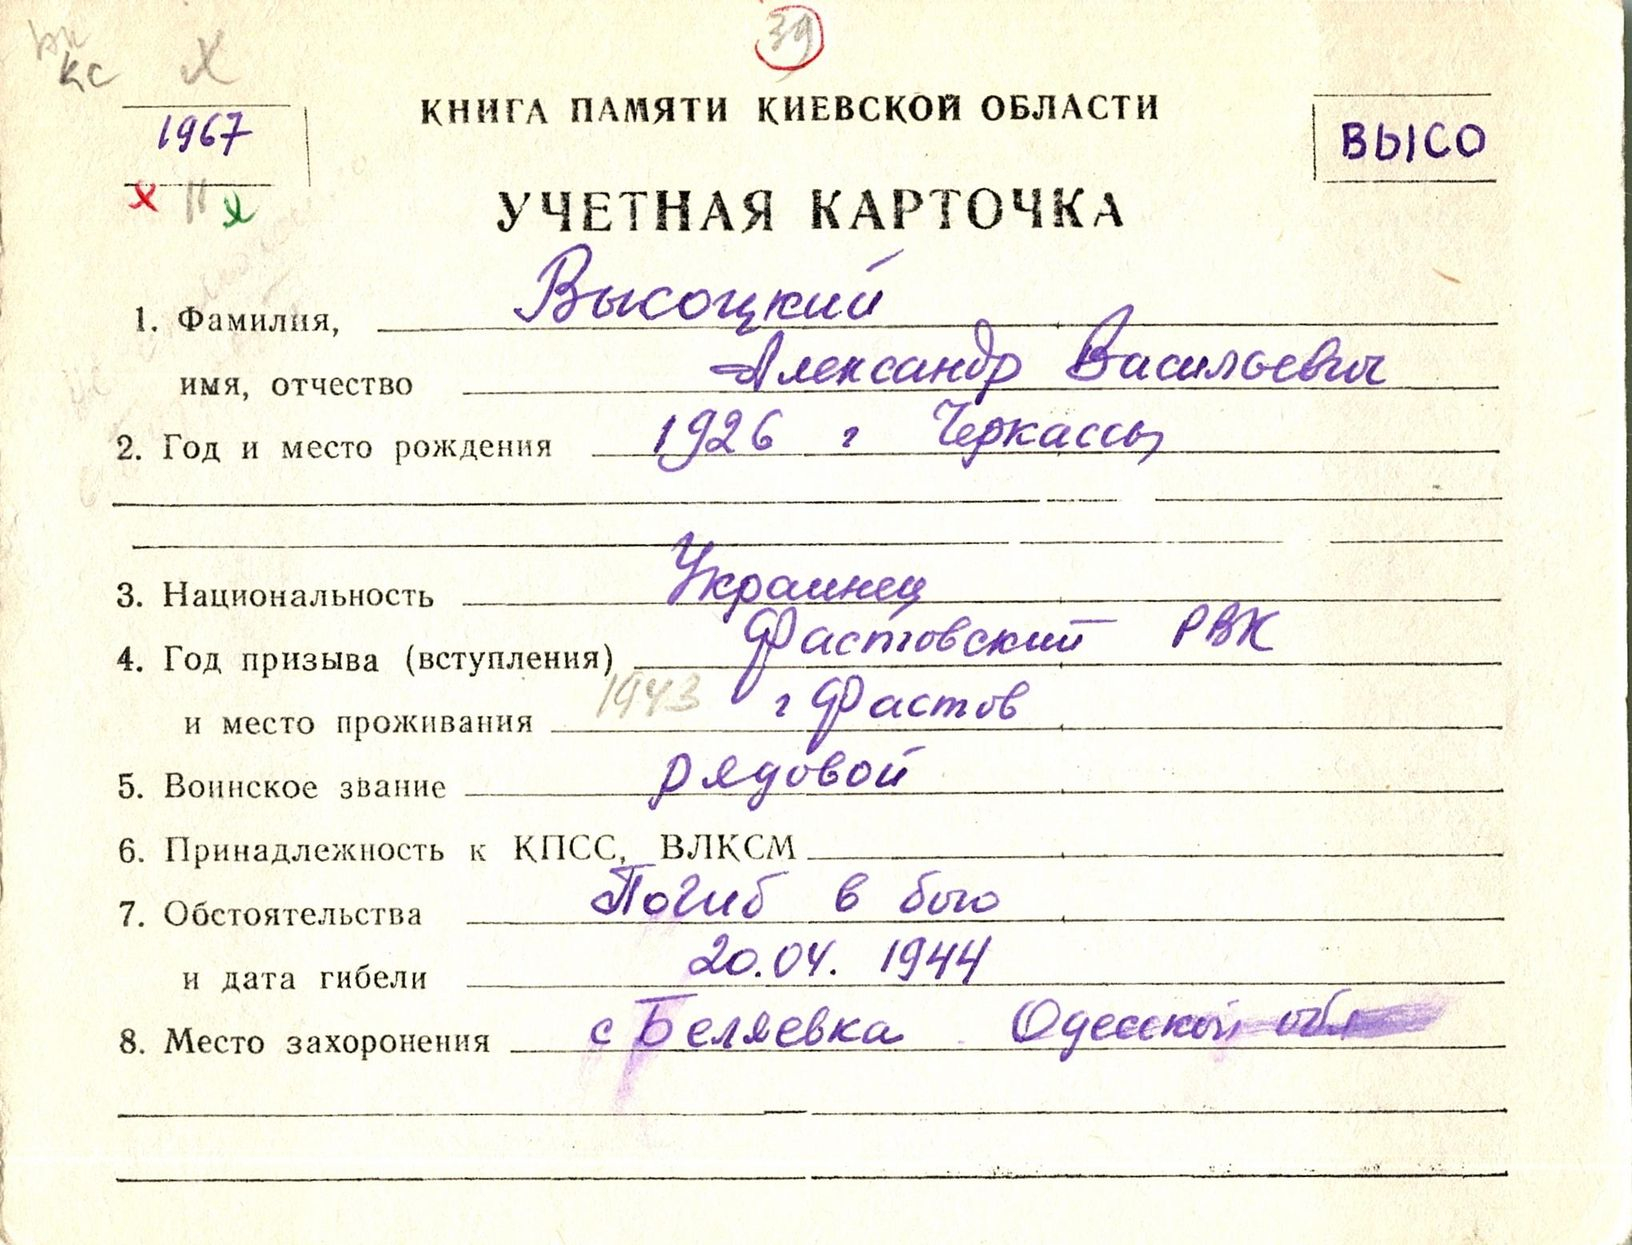 кс
39
1967
КНИГА ПАМЯТИ КИЕВСКОЙ ОБЛАСТИ
ВЫСО
УЧЕТНАЯ КАРТОЧКА
1. Фамилия, Высоцкий
имя, отчество Александр Васильевич
2. Год и место рождения 1926 г Черкассы
3. Национальность Украинец
4. Год призыва (вступления) Фастовский РВК
и место проживания 1943 г Фастов
5. Воинское звание рядовой
6. Принадлежность к КПСС, ВЛКСМ
7. Обстоятельства Погиб в бою
и дата гибели 20.04. 1944
8. Место захоронения с Беляевка Одесской обл